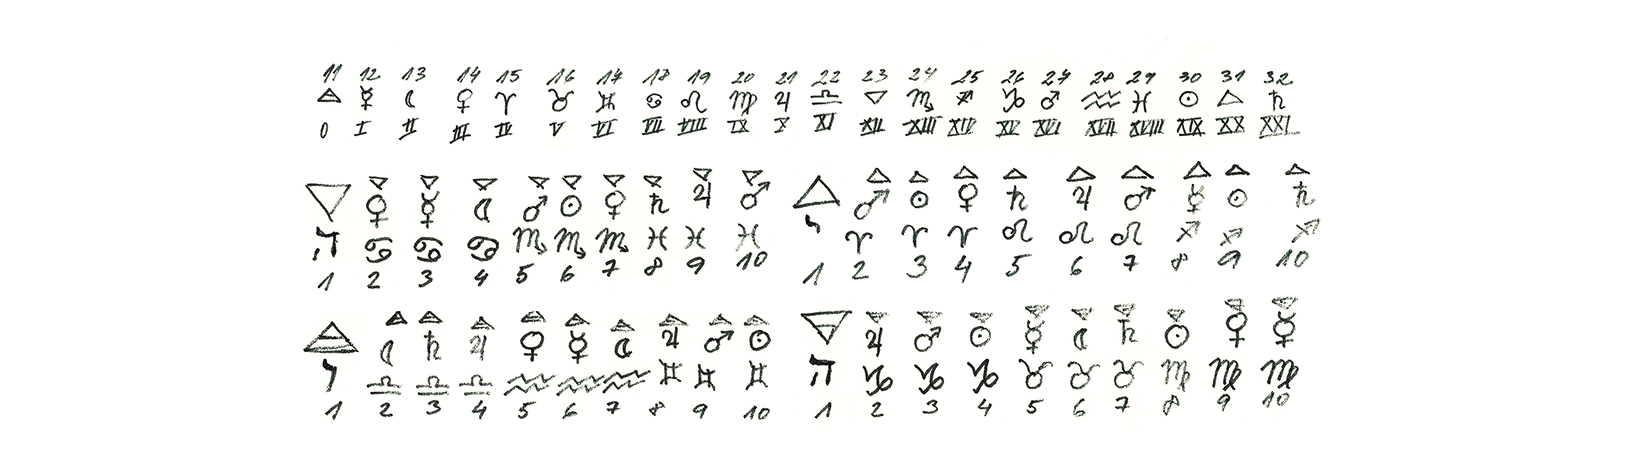 11 12 13 14 15 16 17 18 19 20 21 22 23 24 25 26 27 28 29 30 31 32
🜁 ☿ ☾ ♀ ♈ ♉ ♊ ♋ ♌ ♍ ♃ ♎ 🜄 ♏ ♐ ♑ ♂ ♒ ♓ ☉ 🜂 ♄
0 I II III IV V VI VII VIII IX X XI XII XIII XIV XV XVI XVII XVIII XIX XX XXI
🜄 🜄 🜄 🜄 🜄 🜄 🜄 🜄 🜄 🜄 🜂 🜂 🜂 🜂 🜂 🜂 🜂 🜂 🜂 🜂
♀ ☿ ☾ ♂ ☉ ♀ ♄ ♃ ♂ ♂ ☉ ♀ ♄ ♃ ♂ ☿ ☉ ♄
ה ♋ ♋ ♋ ♏ ♏ ♏ ♓ ♓ ♓ י ♈ ♈ ♈ ♌ ♌ ♌ ♐ ♐ ♐
1 2 3 4 5 6 7 8 9 10 1 2 3 4 5 6 7 8 9 10
🜁 🜁 🜁 🜁 🜁 🜁 🜁 🜁 🜁 🜁 🜃 🜃 🜃 🜃 🜃 🜃 🜃 🜃 🜃 🜃
☾ ♄ ♃ ♀ ☿ ☾ ♃ ♂ ☉ ♃ ♂ ☉ ☿ ☾ ♄ ☉ ♀ ☿
ו ♎ ♎ ♎ ♒ ♒ ♒ ♊ ♊ ♊ ה ♑ ♑ ♑ ♉ ♉ ♉ ♍ ♍ ♍
1 2 3 4 5 6 7 8 9 10 1 2 3 4 5 6 7 8 9 10